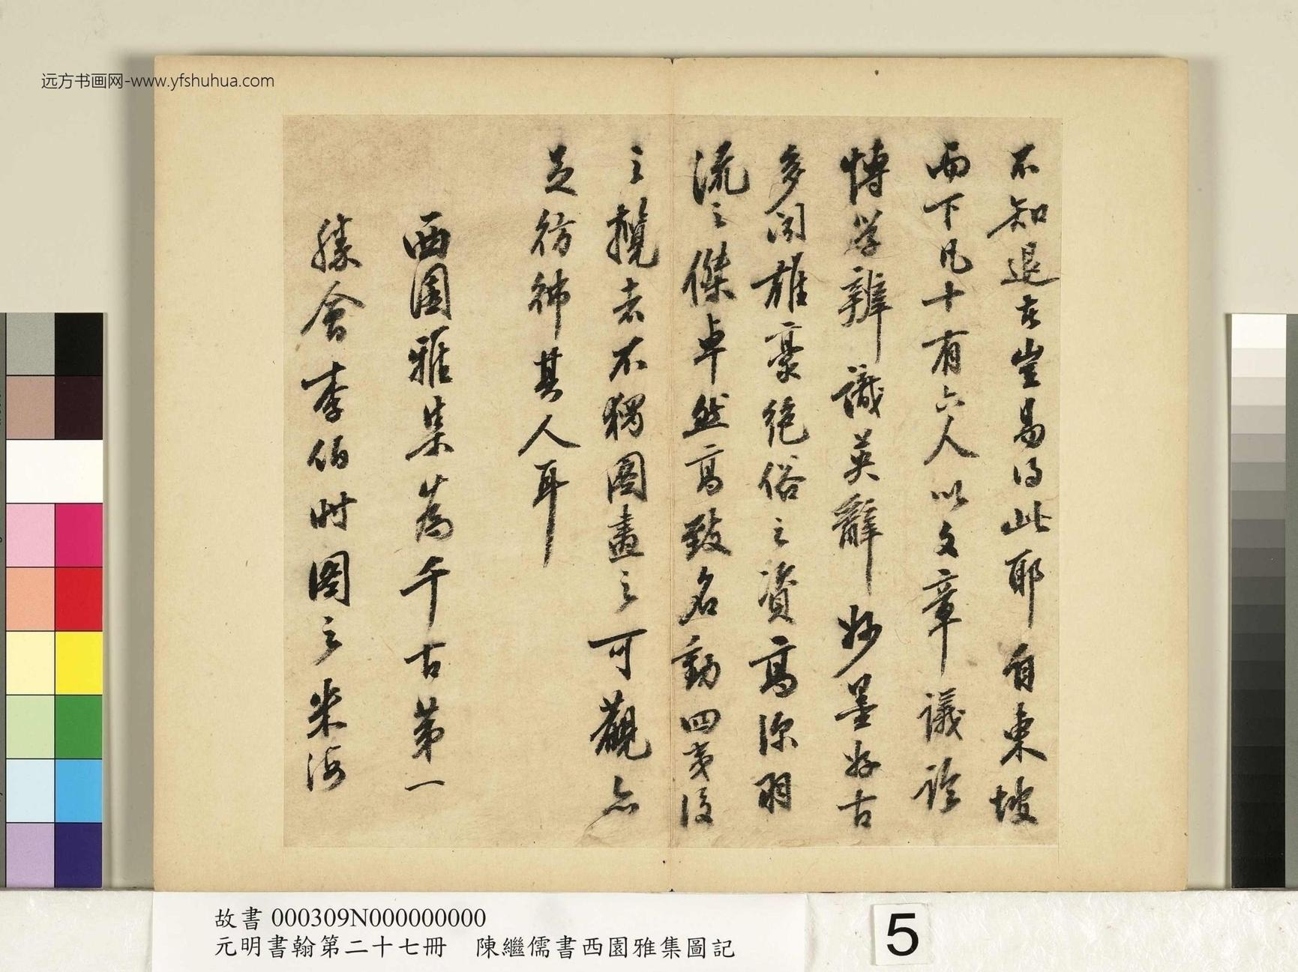 远方书画网-www.yfshuhua.com
不知退者豈易得此耶自東坡
而下凡十有六人以文章議論
博學辨識英辭妙墨好古
多聞雄豪絕俗之資高深羽
流之傑卓然高致名動四夷後
之攬者不獨圖畫之可觀亦
足彷彿其人耳
西園雅集為千古第一
勝會李伯時圖之米海
故書 000309N000000000
元明書翰第二十七冊 陳繼儒書西園雅集圖記
5